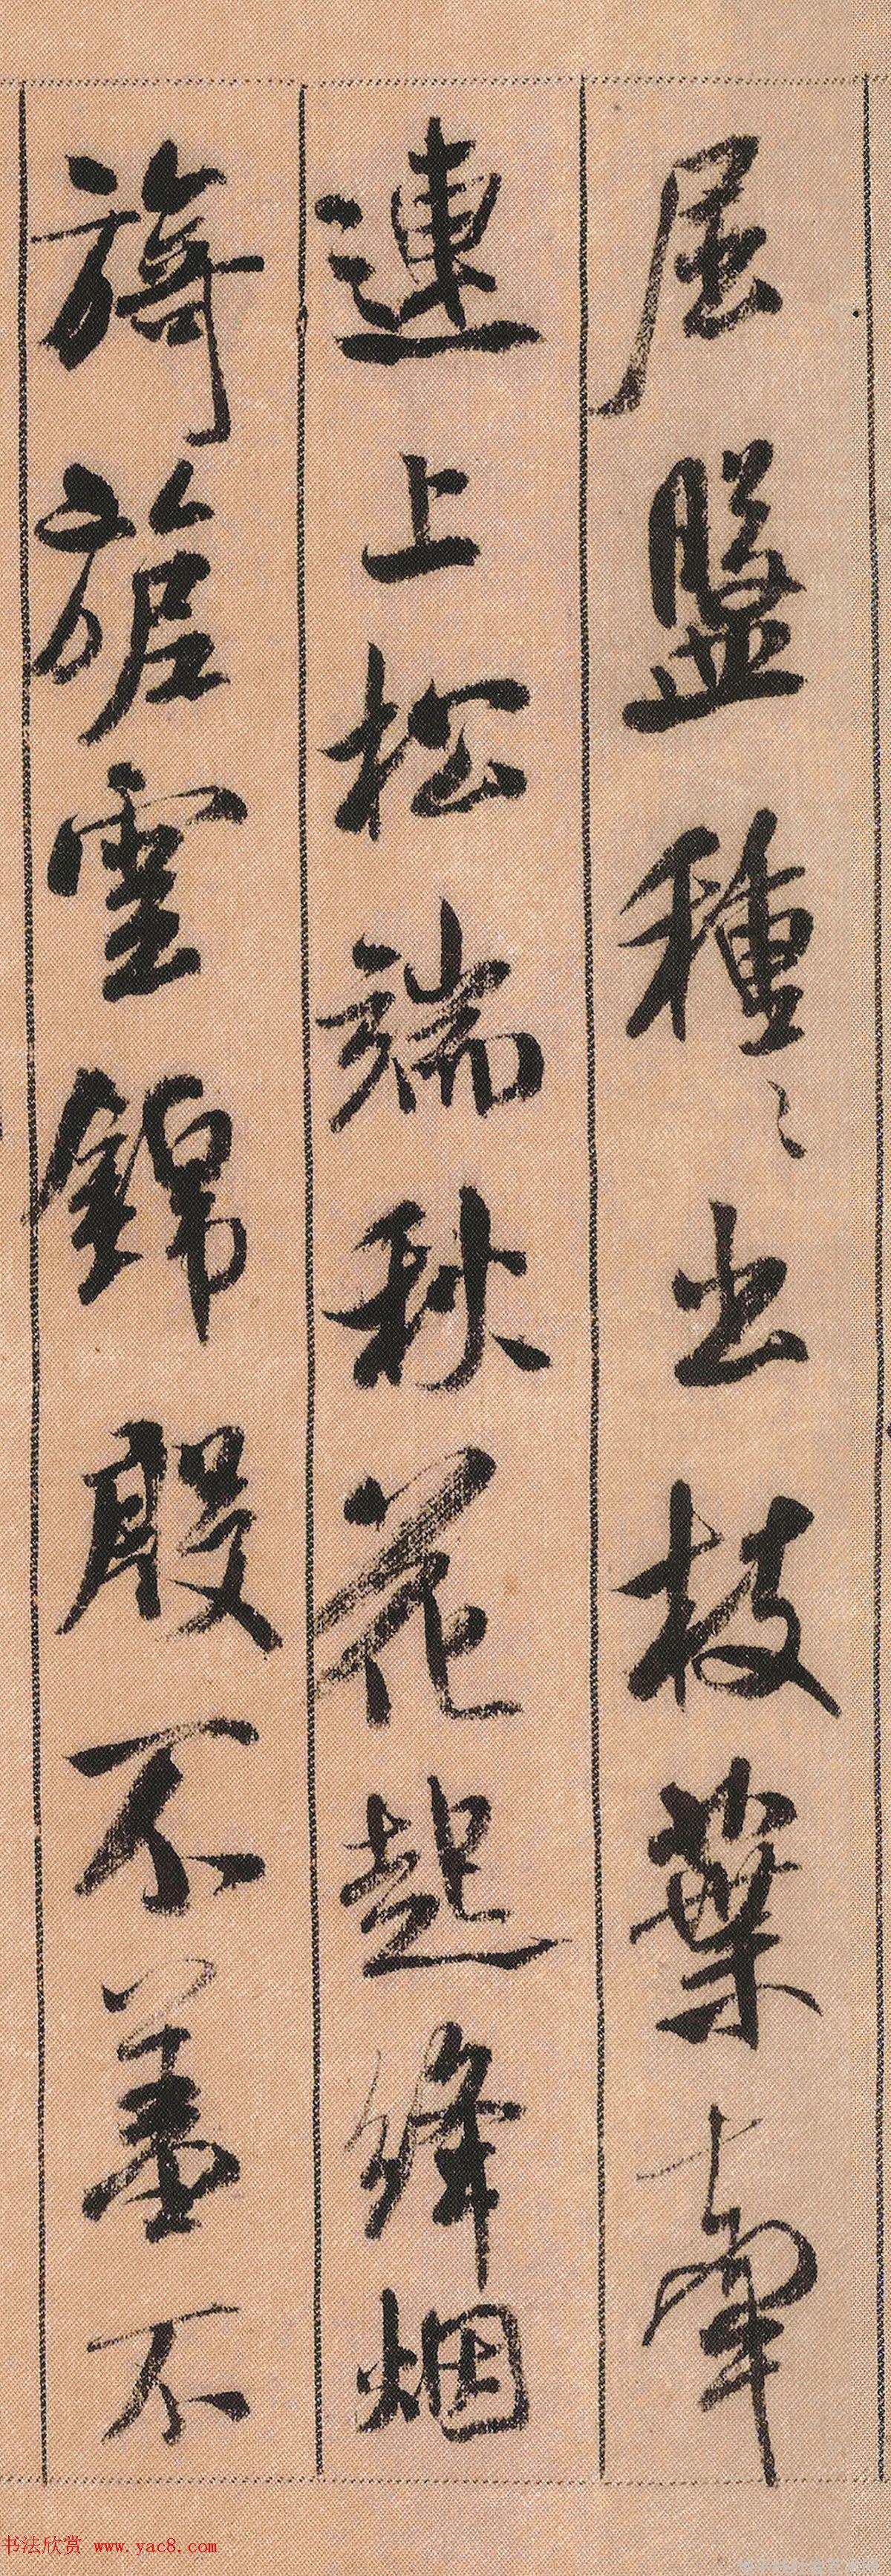 屈盤種々出枝葉牽
連上松端秋花起絳烟
旖旎雲錦殷不羞不
书法欣赏 www.yac8.com